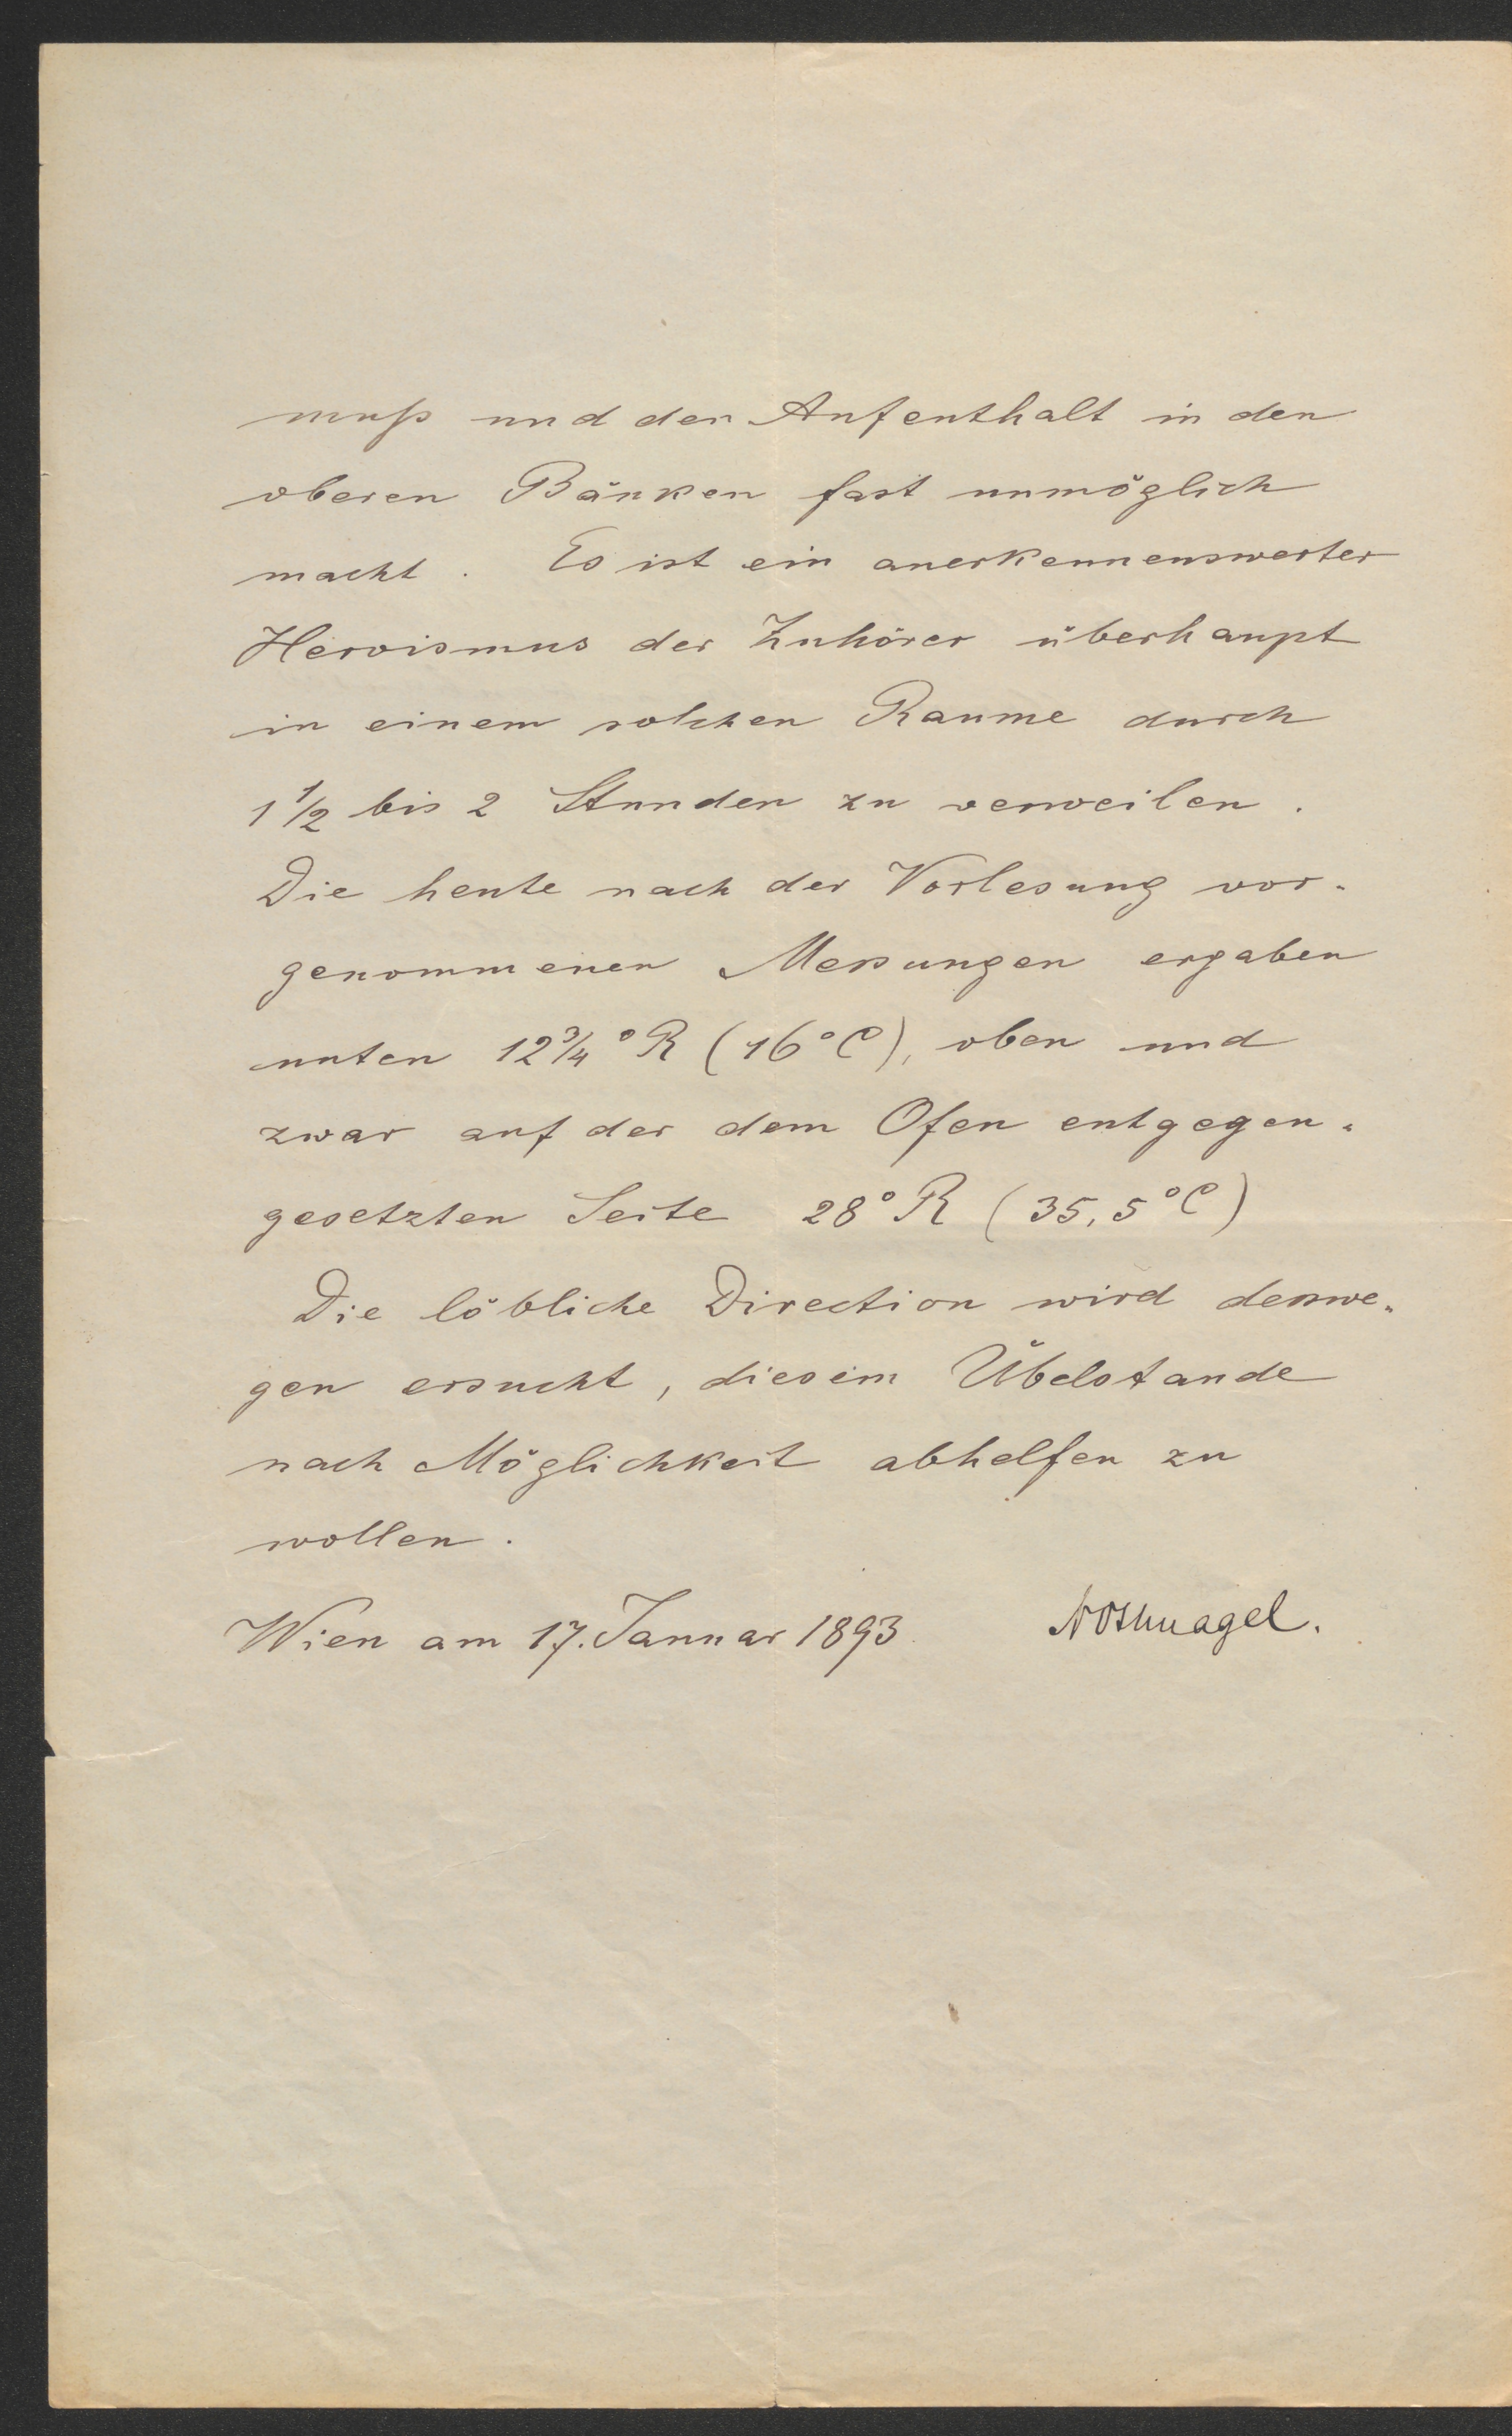 muß und den Aufenthalt in den
oberen Bänken fast unmöglich
macht. Es ist ein anerkennenswerter
Heroismus der Zuhörer überhaupt
in einem solchen Raume durch
1 1/2 bis 2 Stunden zu verweilen.
Die heute nach der Vorlesung vor-
genommenen Messungen ergaben
unten 12 3/4 °R (16°C), oben und
zwar auf der dem Ofen entgegen-
gesetzten Seite 28°R (35,5°C)
Die löbliche Direction wird desswe-
gen ersucht, diesem Übelstande
nach Möglichkeit abhelfen zu
wollen.
Wien am 17. Januar 1893. Nothnagel.